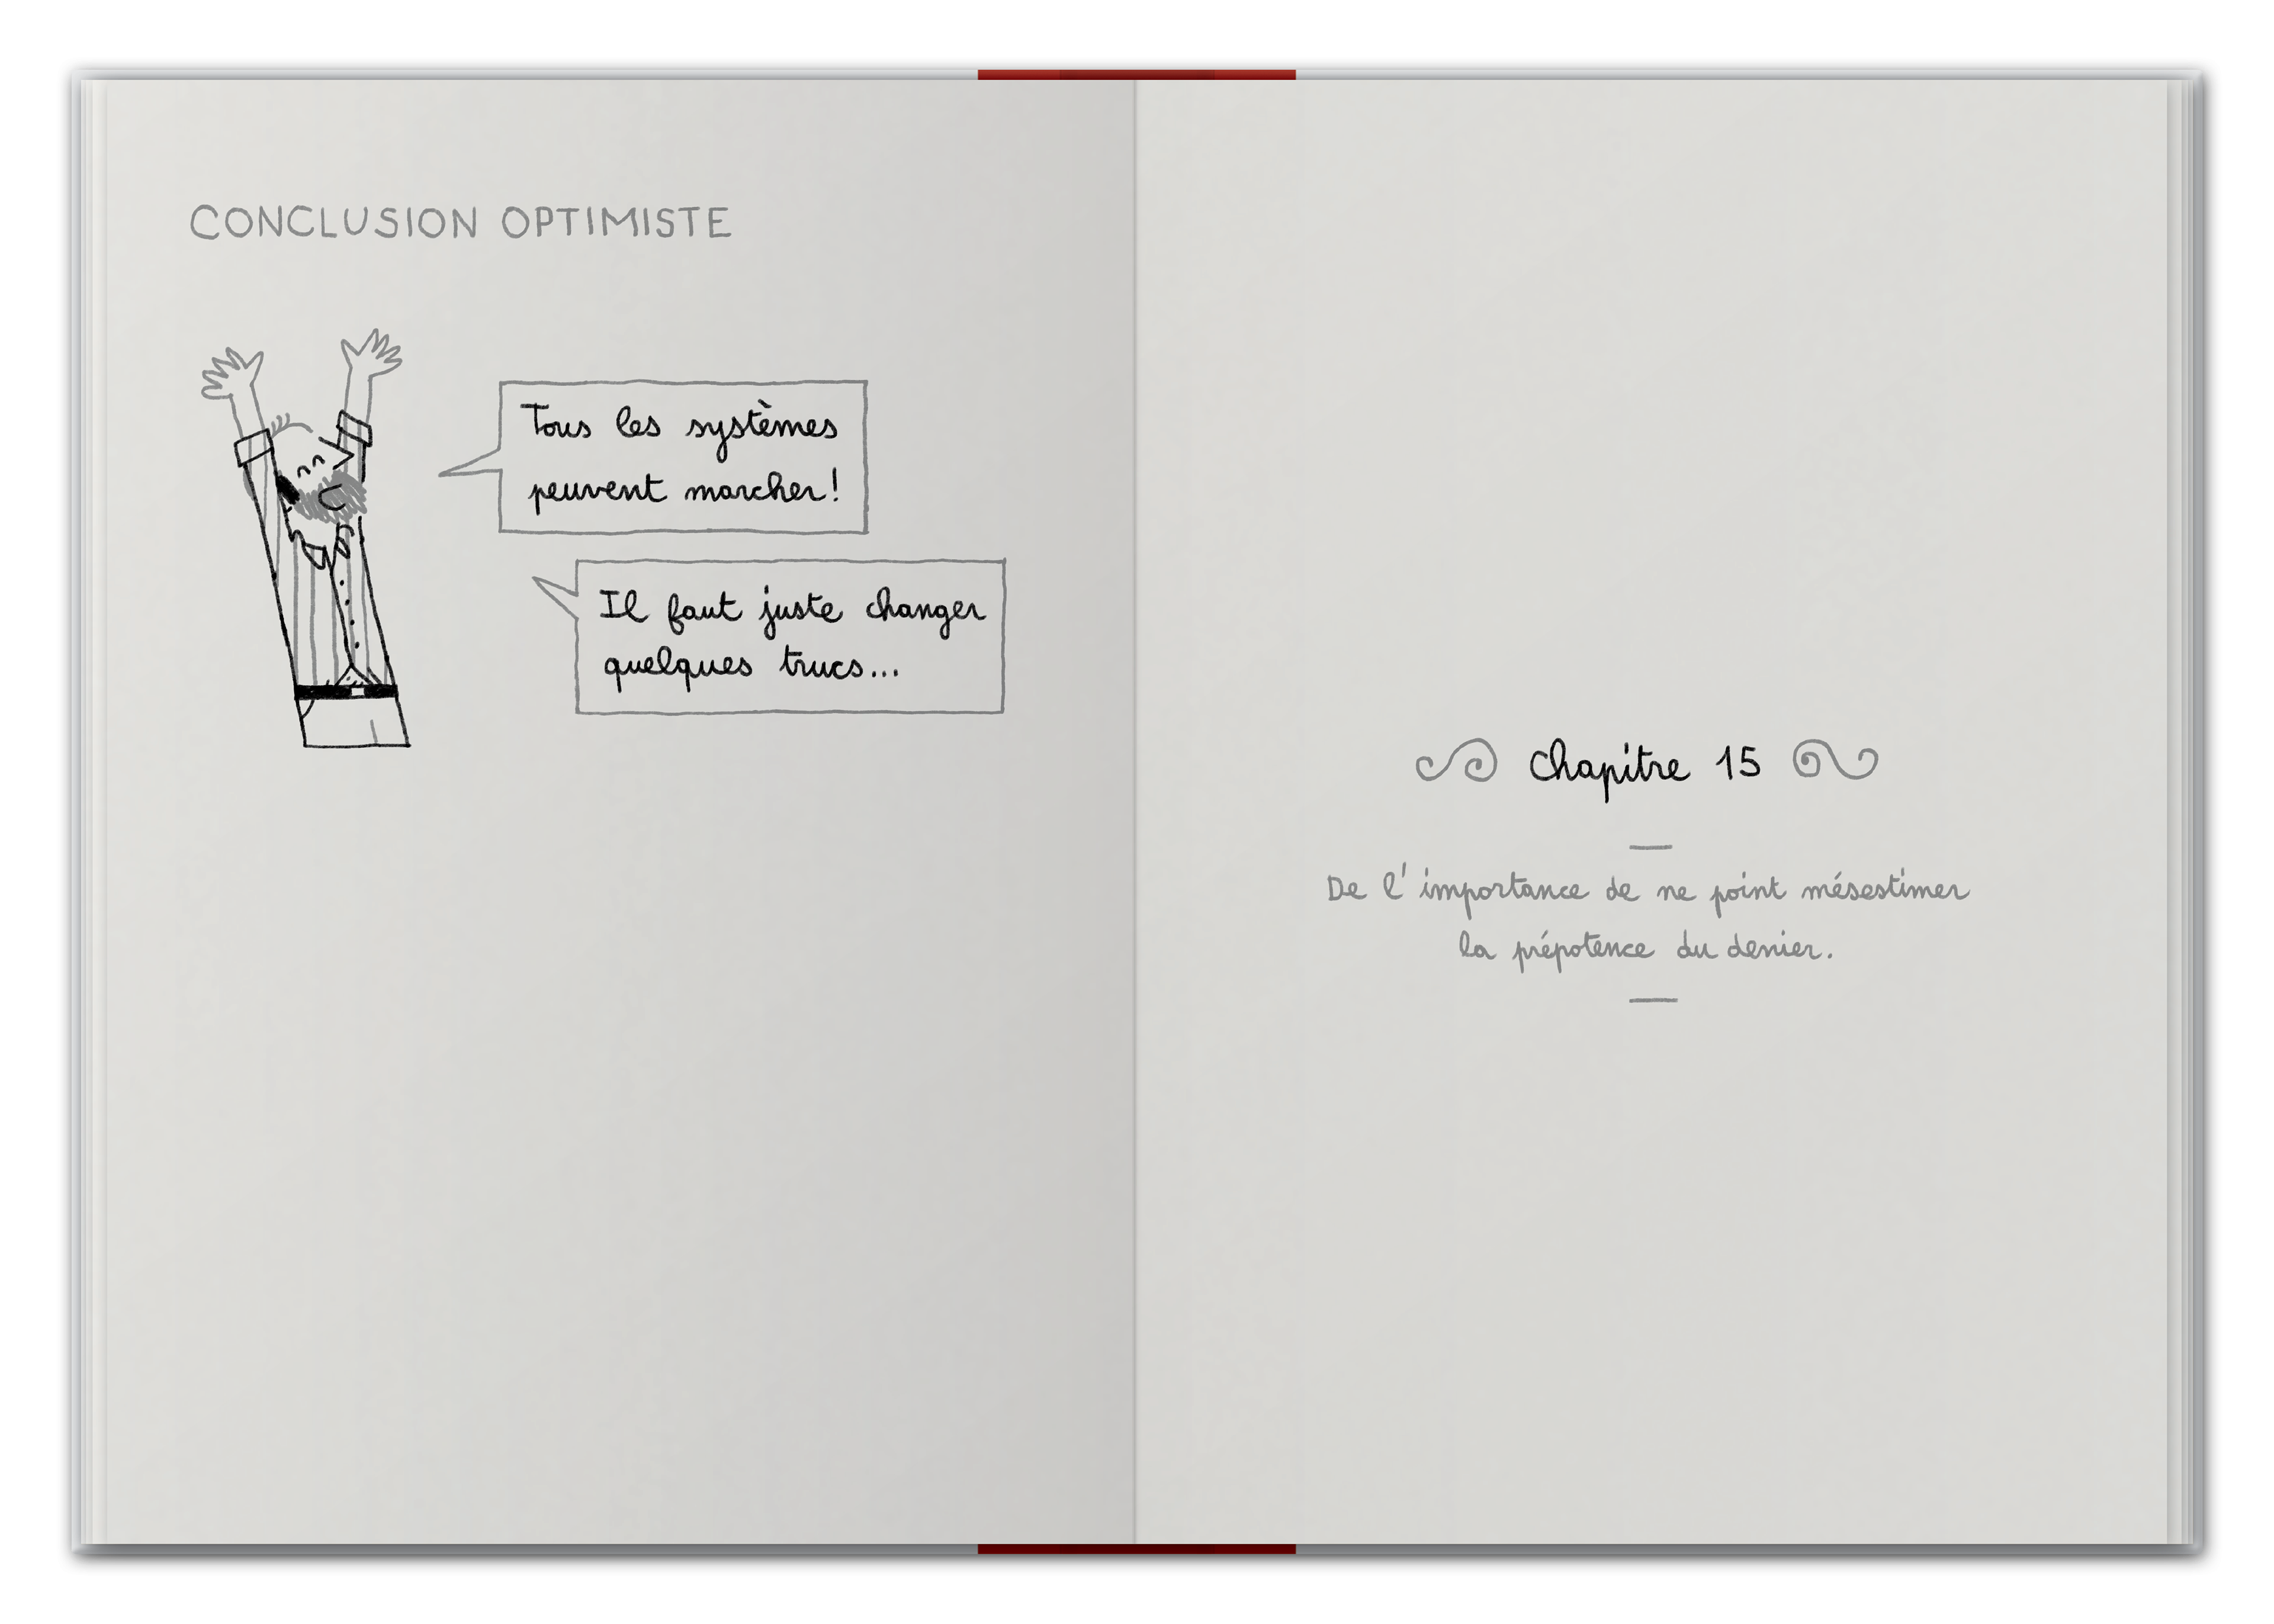 CONCLUSION OPTIMISTE
Tous les systèmes
peuvent marcher!
Il faut juste changer
quelques trucs...
Chapitre 15
De l'importance de ne point mésestimer
la prépotence du denier.